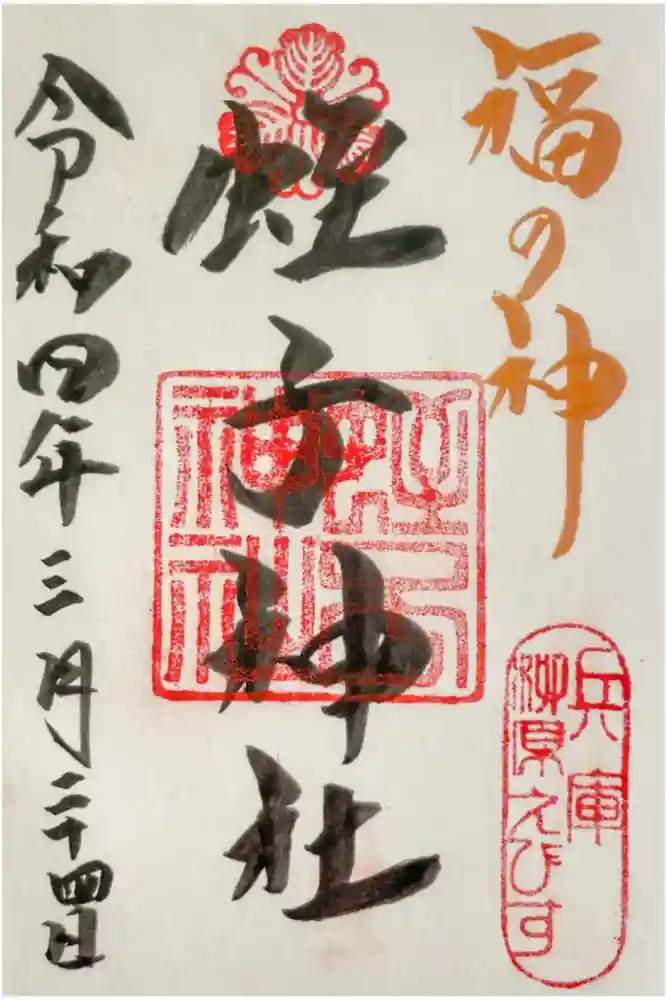 福の神
兵庫
柳原えびす
蛭子神社
蛭子
神社
令和四年三月二十四日